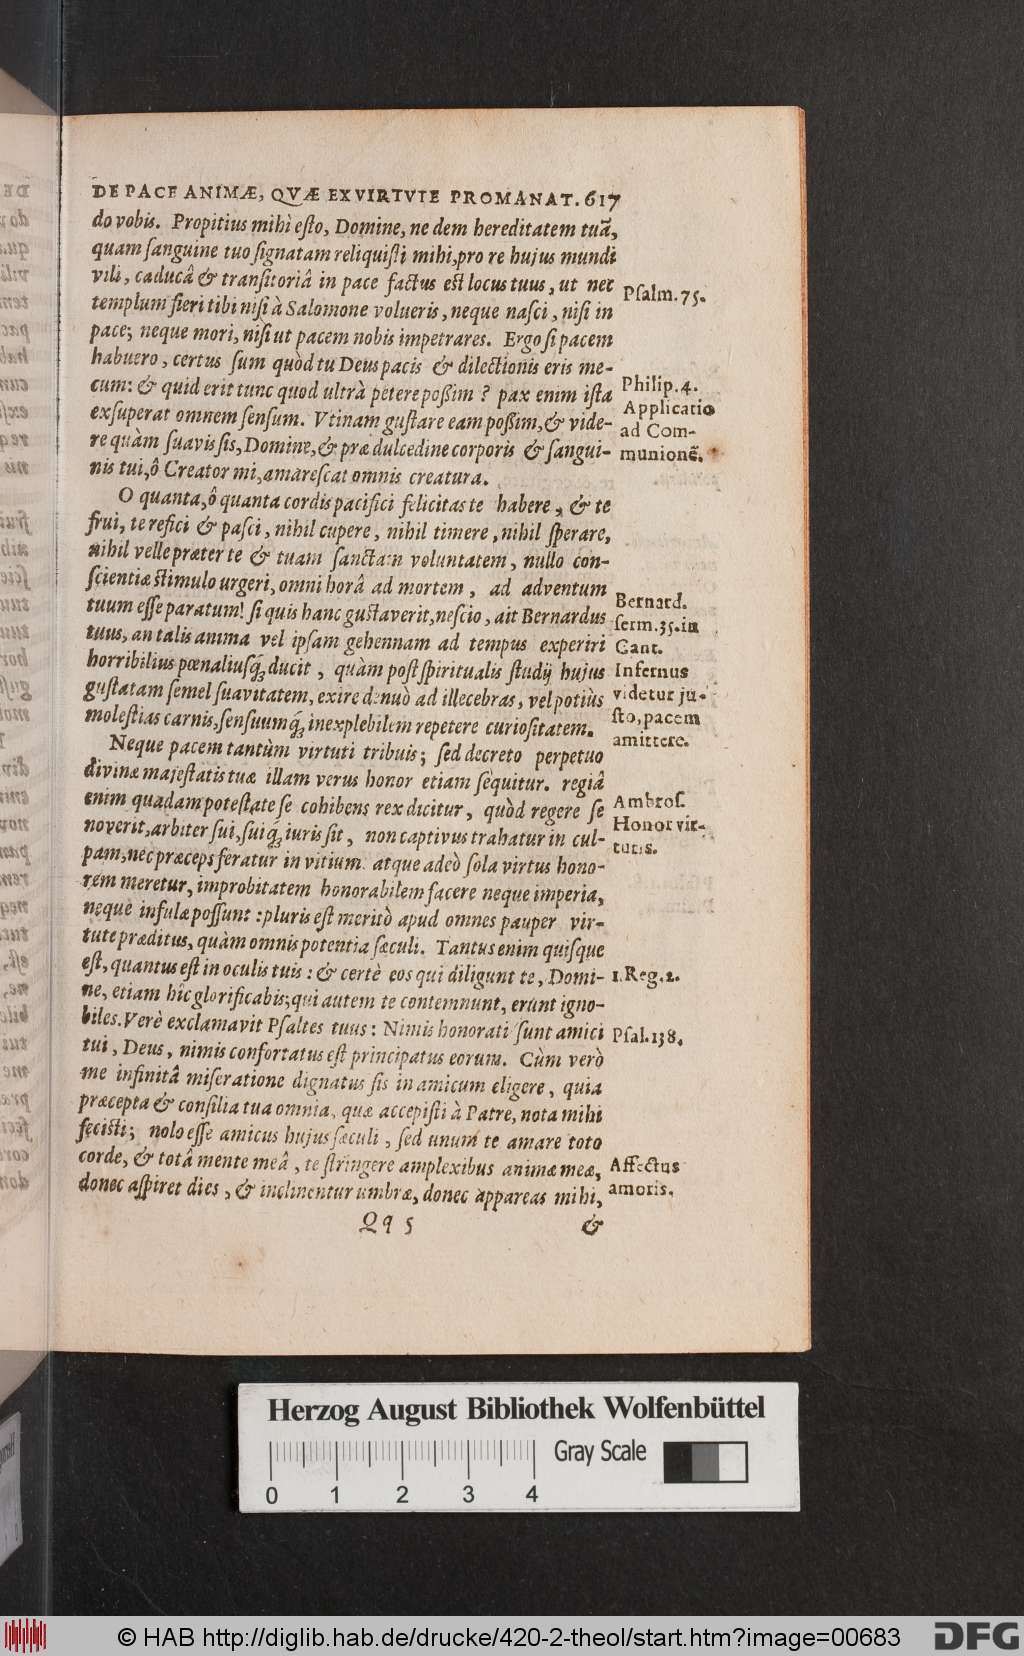 DE PACE ANIMÆ, QVÆ EX VIRTVTE PROMANAT. 617
do vobis. Propitius mihi esto, Domine, ne dem hereditatem tuā,
quam sanguine tuo signatam reliquisti mihi, pro re hujus mundi
vili, caducâ & transitoriâ in pace factus est locus tuus, ut nec
templum fieri tibi nisi à Salomone volueris, neque nasci, nisi in
pace; neque mori, nisi ut pacem nobis impetrares. Ergo si pacem
habuero, certus sum quòd tu Deus pacis & dilectionis eris me-
cum: & quid erit tunc quod ultrà petere poßim? pax enim ista
exsuperat omnem sensum. Vtinam gustare eam poßim, & vide-
re quàm suavis sis, Domine, & præ dulcedine corporis & sangui-
nis tui, ô Creator mi, amarescat omnis creatura.
O quanta, ô quanta cordis pacifici felicitas te habere, & te
frui, te refici & pasci, nihil cupere, nihil timere, nihil sperare,
nihil velle præter te & tuam sanctam voluntatem, nullo con-
scientiæ stimulo urgeri, omni horâ ad mortem, ad adventum
tuum esse paratum! si quis hanc gustaverit, nescio, ait Bernardus
tuus, an talis anima vel ipsam gehennam ad tempus experiri
horribilius pœnaliusq́; ducit, quàm post spiritualis studij hujus
gustatam semel suavitatem, exire denuò ad illecebras, vel potiùs
molestias carnis, sensuumq́; inexplebilem repetere curiositatem.
Neque pacem tantùm virtuti tribuis; sed decreto perpetuo
divinæ majestatis tuæ illam verus honor etiam sequitur. regiâ
enim quadam potestate se cohibens rex dicitur, quòd regere se
noverit, arbiter sui, suiq́; iuris sit, non captivus trahatur in cul-
pam, nec præceps feratur in vitium. atque adeò sola virtus hono-
rem meretur, improbitatem honorabilem facere neque imperia,
neque infulæ possunt: pluris est meritò apud omnes pauper vir-
tute præditus, quàm omnis potentia sæculi. Tantus enim quisque
est, quantus est in oculis tuis: & certè eos qui diligunt te, Domi-
ne, etiam hîc glorificabis; qui autem te contemnunt, erunt igno-
biles. Verè exclamavit Psaltes tuus: Nimis honorati sunt amici
tui, Deus, nimis confortatus est principatus eorum. Cùm verò
me infinitâ miseratione dignatus sis in amicum eligere, quia
præcepta & consilia tua omnia, quæ accepisti à Patre, nota mihi
fecisti; nolo esse amicus hujus sæculi, sed unum te amare toto
corde, & totâ mente meâ, te stringere amplexibus animæ meæ,
donec aspiret dies, & inclinentur umbræ, donec appareas mihi,
Qq 5
&
Psalm. 75.
Philip. 4.
Applicatio
ad Com-
munionē.
Bernard.
serm. 35. in
Cant.
Infernus
videtur ju-
sto, pacem
amittere.
Ambros.
Honor vir-
tutis.
1. Reg. 2.
Psal. 138.
Affectus
amoris.
Herzog August Bibliothek Wolfenbüttel
Gray Scale
0 1 2 3 4
© HAB http://diglib.hab.de/drucke/420-2-theol/start.htm?image=00683
DFG